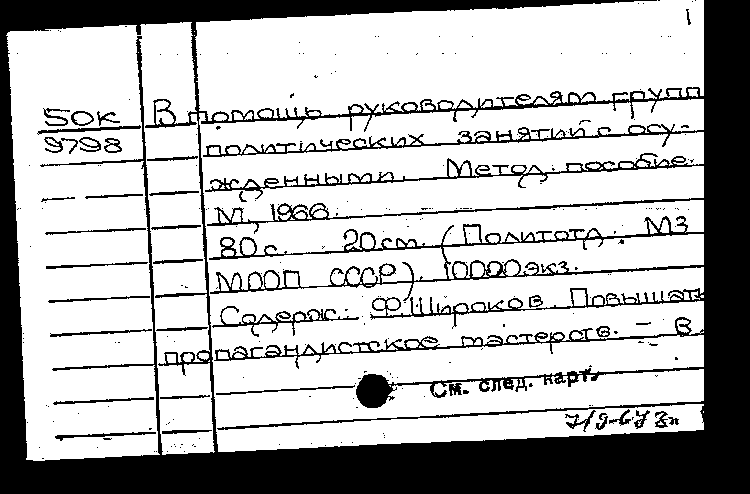 1
50к В помощь руководителям групп
9798 политических занятий с осу-
жденными. Метод. пособие.
М., 1966.
80 с. 20 см. (Политотд. МЗ
МООП СССР). 10000 экз.
Содерж.: Ф. Широков. Повышать
пропагандистское мастерств. – В.
См. след. карт.